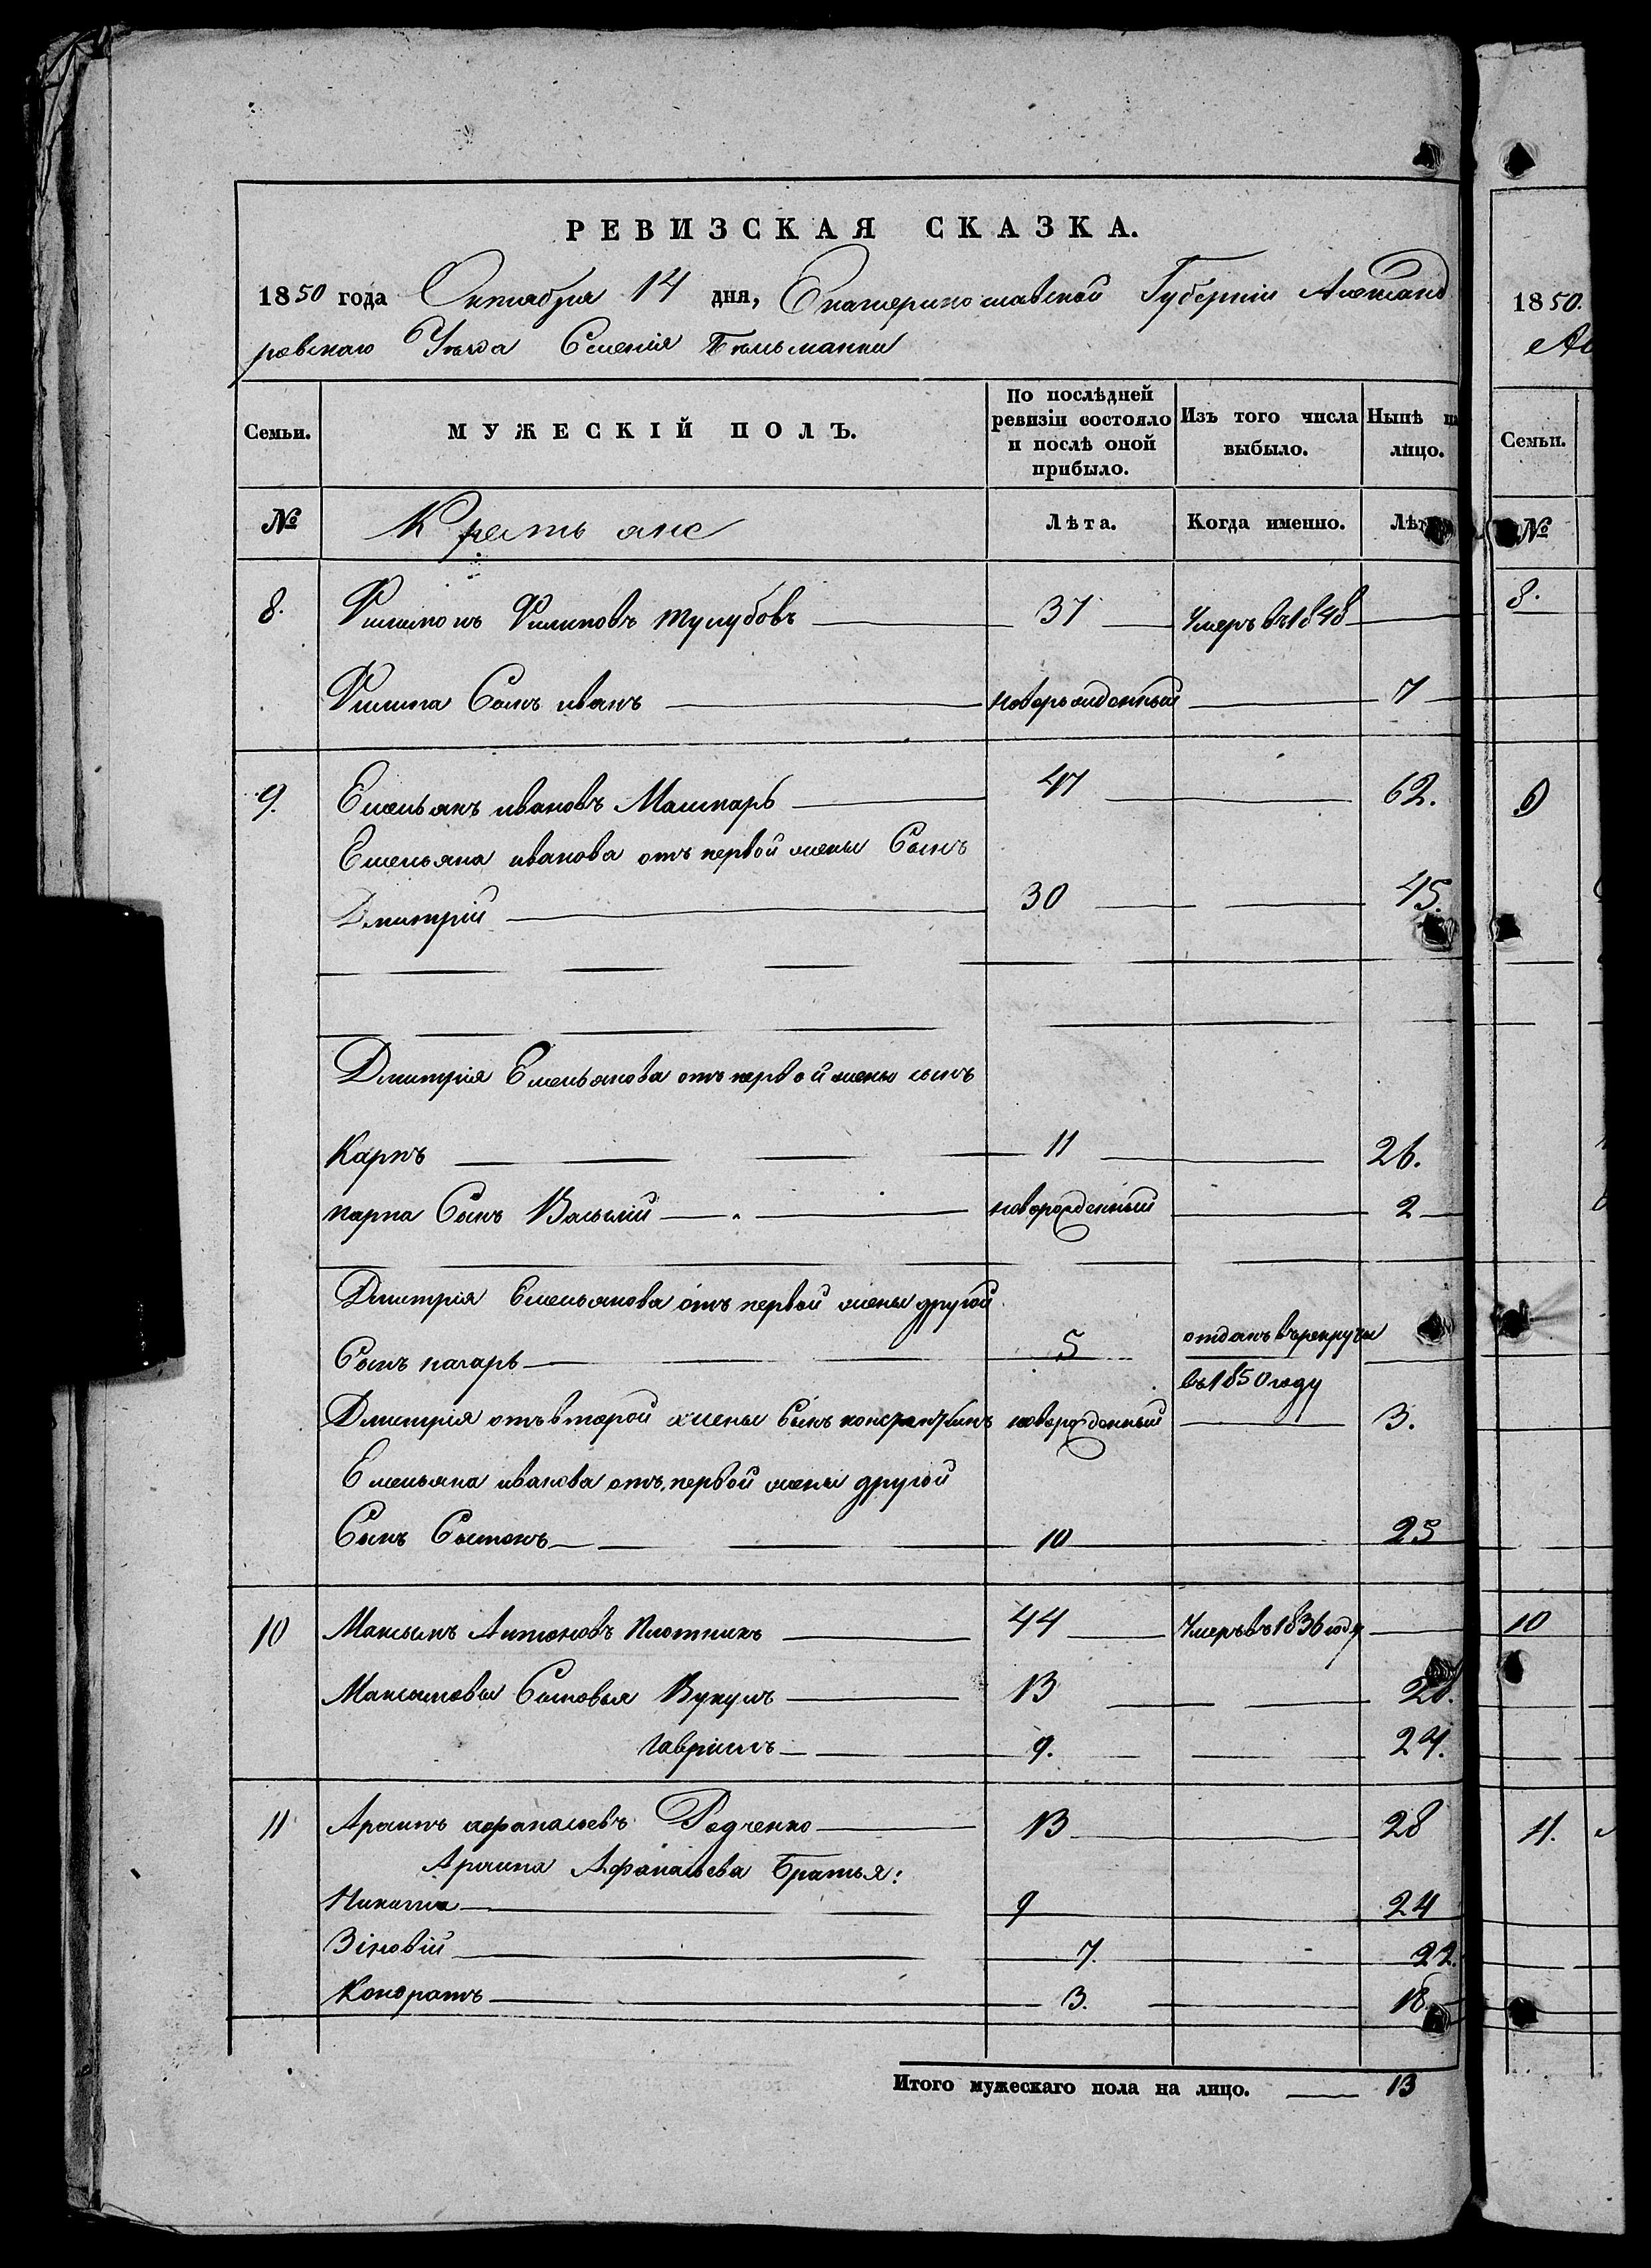 РЕВИЗСКАЯ СКАЗКА.
1850 года Октября 14 дня, Екатеринославской Губерніи Александ
ровскаго Уѣзда Селенія Бельманки
Семьи. МУЖЕСКІЙ ПОЛЪ. По послѣдней ревизіи состояло и послѣ оной прибыло. Изъ того числа выбыло. Нынѣ на лицо.
№ Крестьяне Лѣта. Когда именно. Лѣт
8. Филимонъ Филиповъ Тулубовъ 37 Умеръ въ 1848
Филипа Сынъ иванъ новорожденный 7
9. Емельянъ ивановъ Машкарь 47 62.
Емельяна иванова отъ первой жены Сынъ
Дмитрій 30 45.
Дмитрія Емельянова отъ первой жены сынъ
Карпъ 11 26.
карпа Сынъ Василій новорожденный 2
Дмитрія Емельянова отъ первой жены другой
Сынъ назарь 5 отданъ въ рекруты
въ 1850 году
Дмитрія отъ второй жены Сынъ константинъ новорожденный 3.
Емельяна иванова отъ первой жены другой
Сынъ 10 25
10 Максимъ Антоновъ Плотникъ 44 Умеръ въ 1836 году
Максимовы Сыновья Вукулъ 13 28.
Гаврiилъ 9. 24.
11 афанасьевъ Редченко 13 28
Афанасьева Братья:
Никита 9 24
Зіновій 7. 22.
Кондратъ 3. 18.
Итого мужескаго пола на лицо. 13
1850.
Семьи.
№
8.
9
10
11.